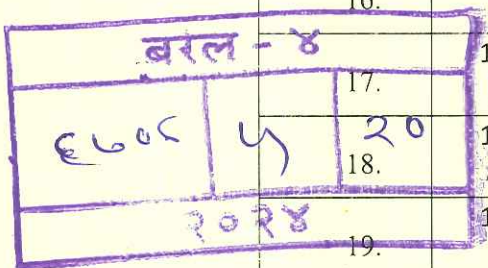 16.
बरल - ४
17.
६७०८ ५ २०
18.
२०२४
19.